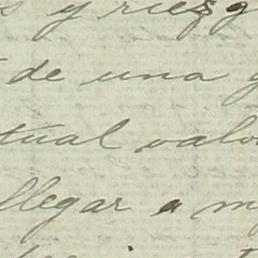 y riezg
de una
tual valo
llegar a m